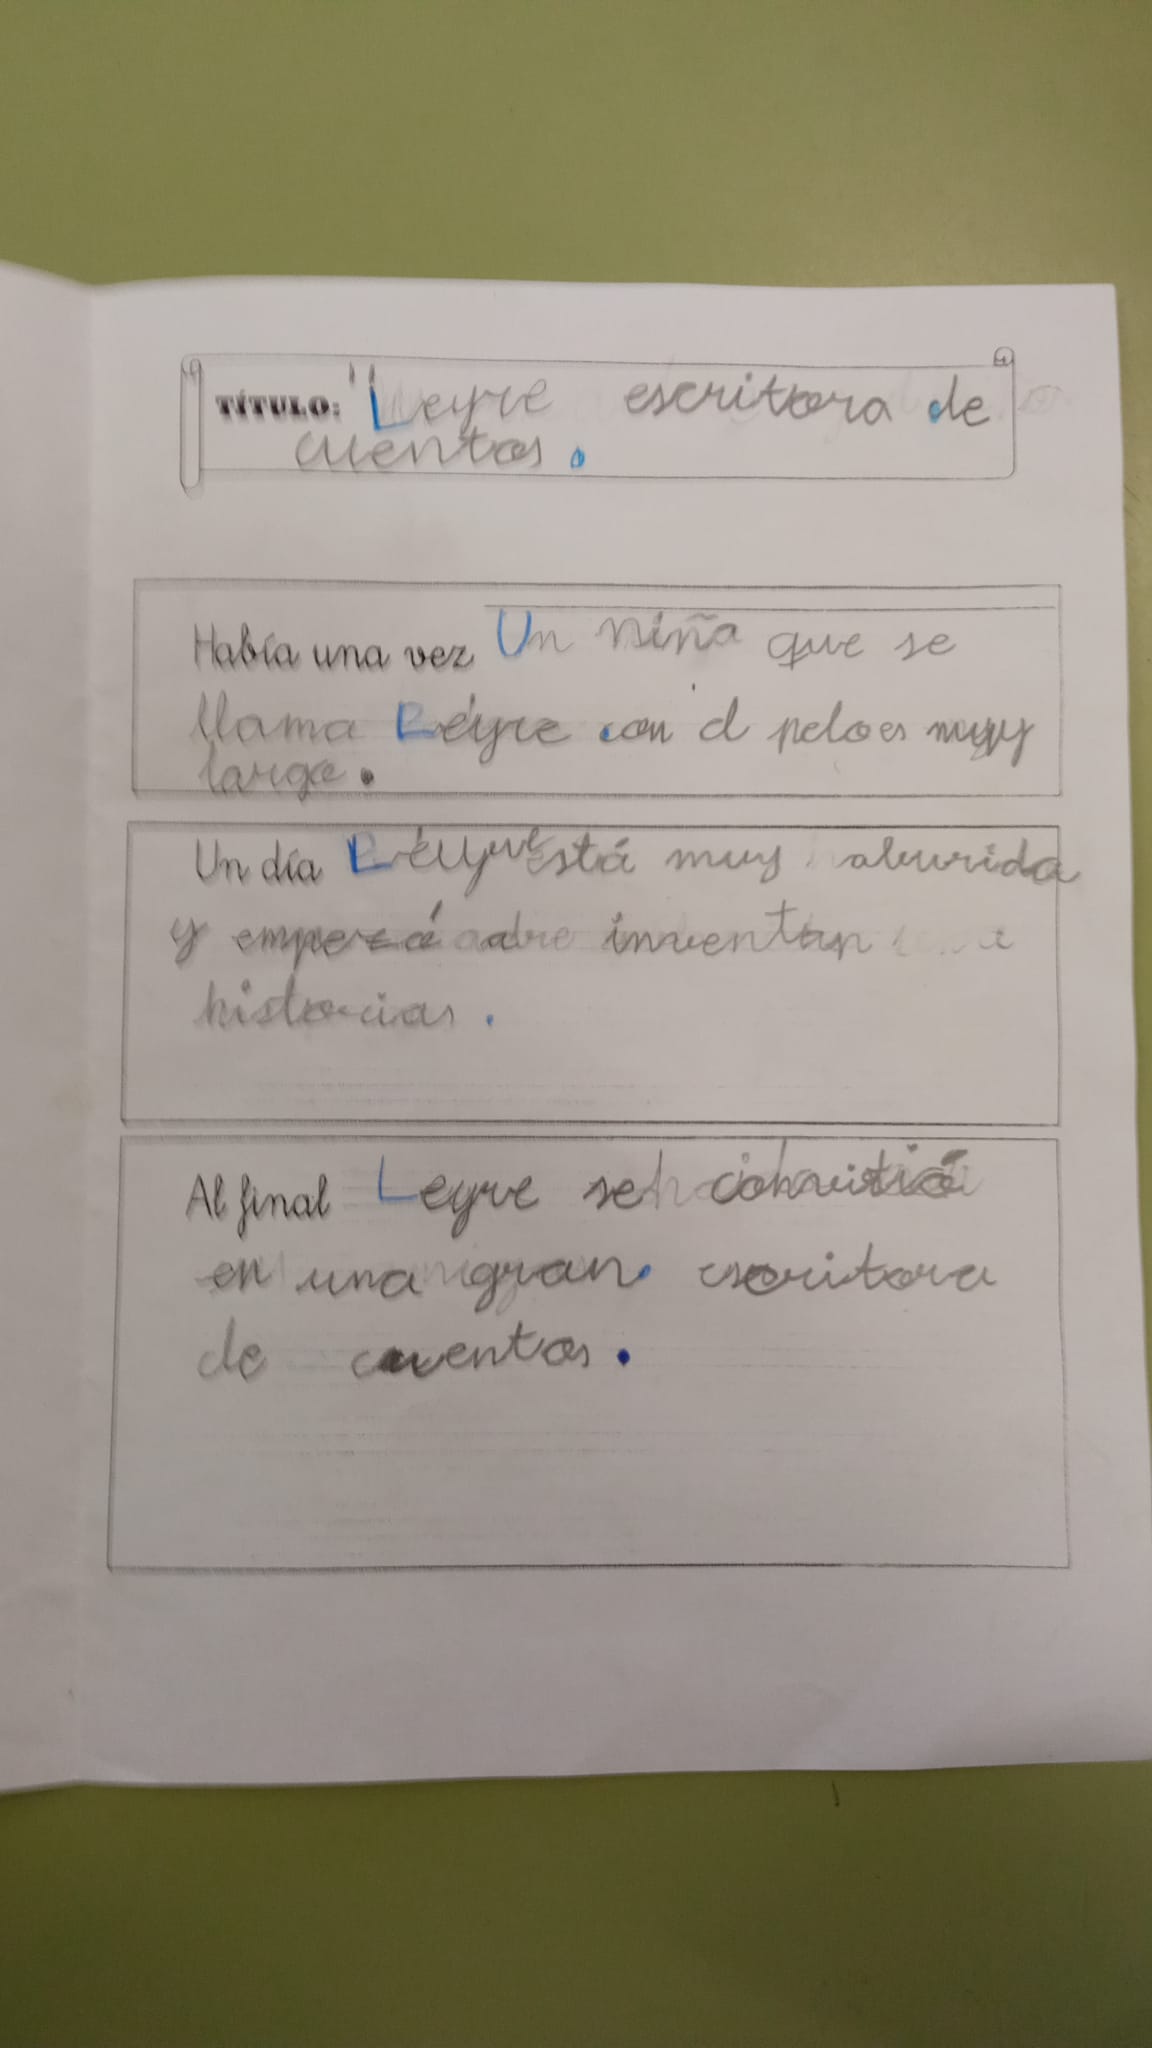 TÍTULO: "Leyre escritora de
cuentos.
Había una vez Un niña que se
llama Leyre con el pelo es muy
largo.
Un día Leyre está muy aburrida
y empezó inventar
historias.
Al final Leyre se convirtió
en una gran. escritora
de cuentos.